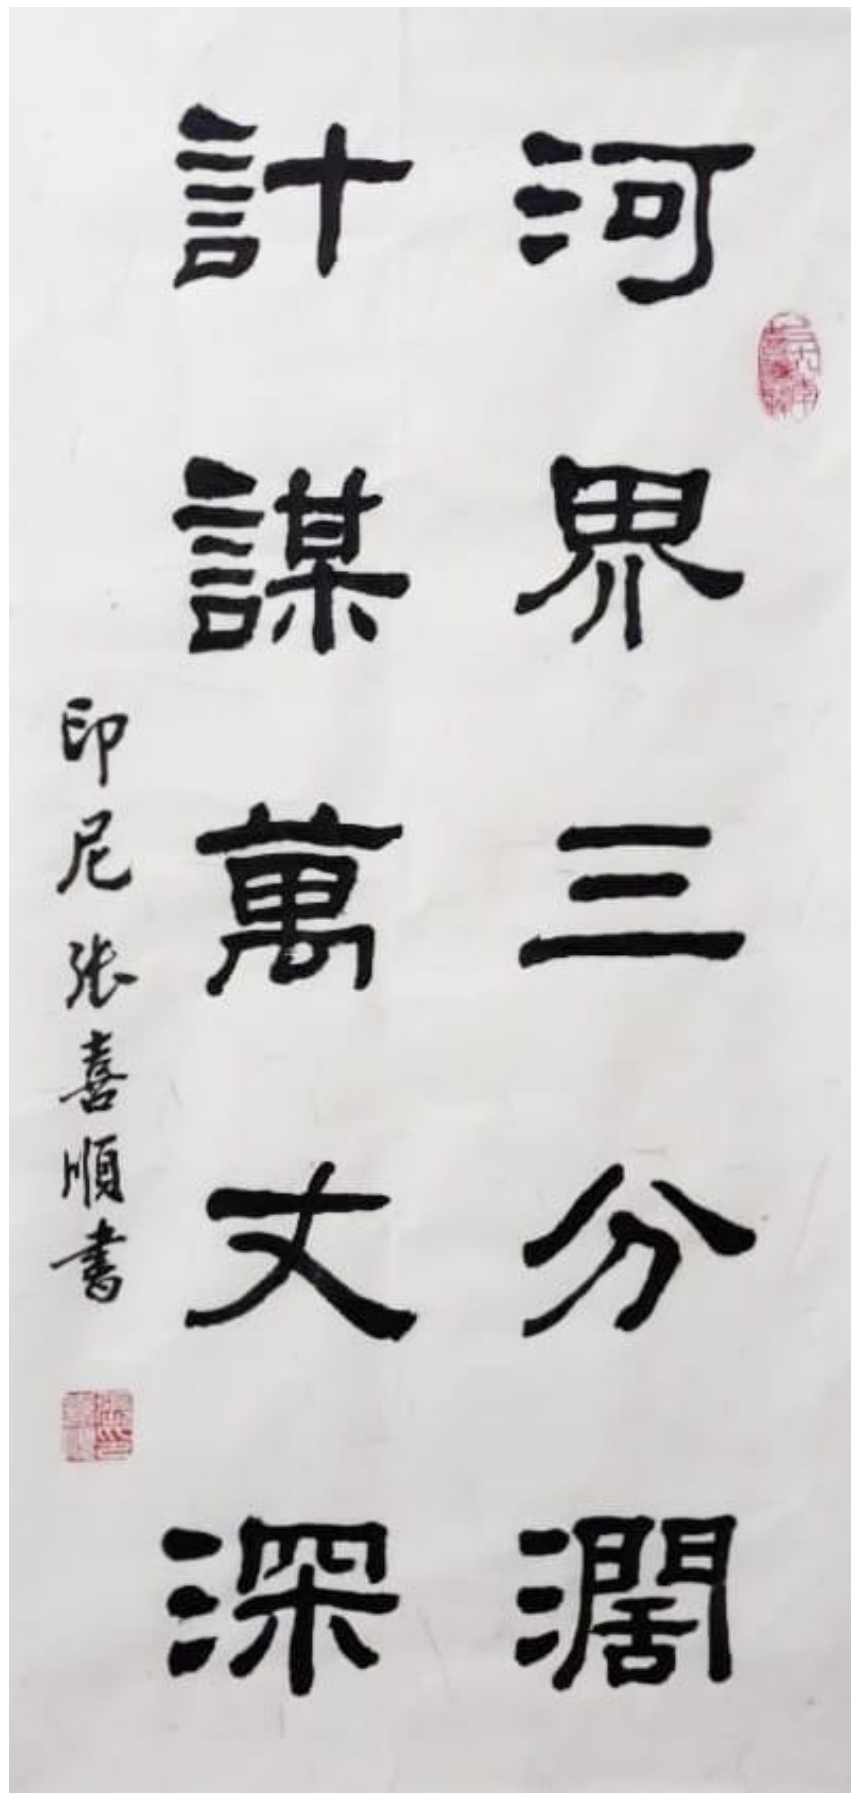 河界三分濶
計謀萬丈深
印尼张喜順書